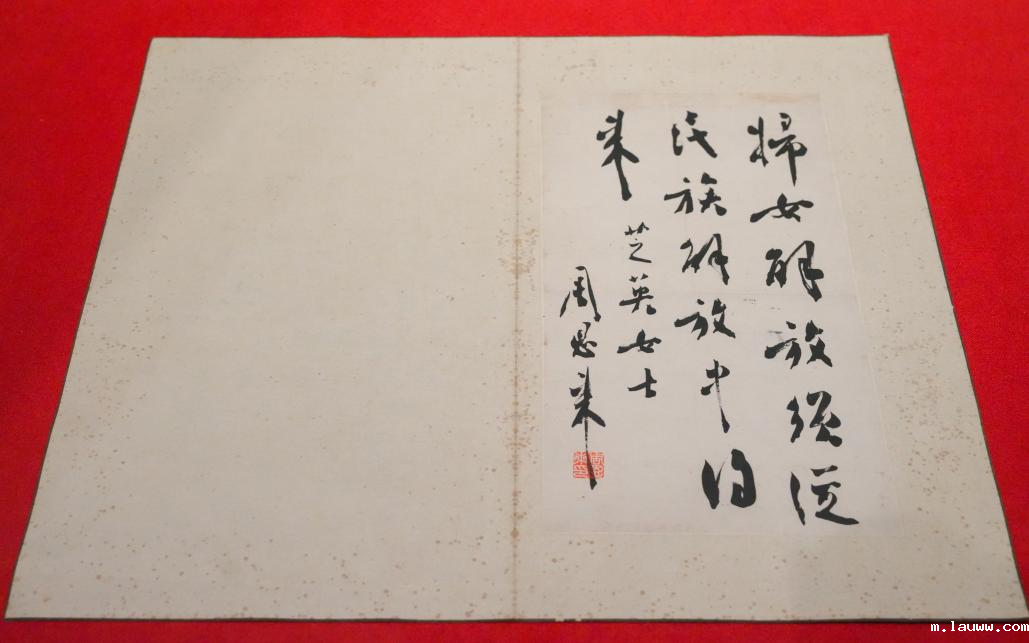 婦女解放須從
民族解放中得
來
芝英女士
周恩來
m.lauww.com